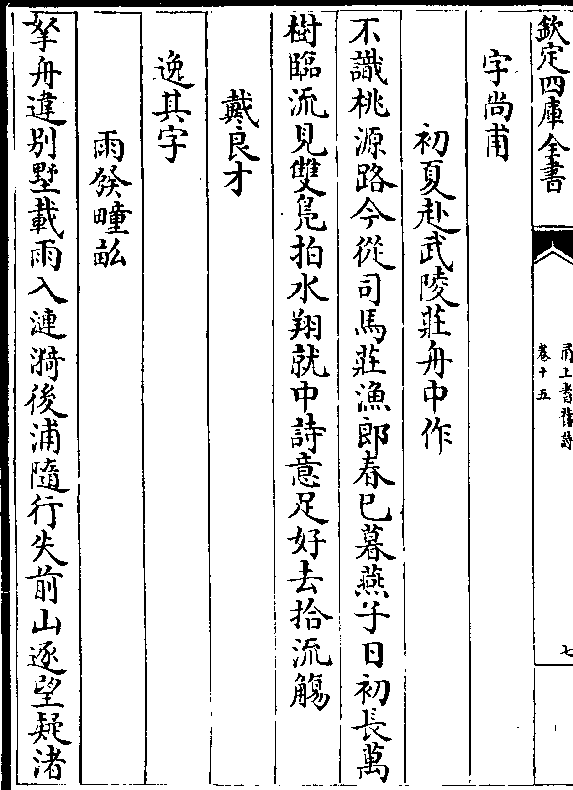 欽定四庫全書
甬上耆舊詩
卷十五
七
字尚甫
初夏赴武陵莊舟中作
不識桃源路今從司馬莊漁郎春已暮燕子日初長萬
樹臨流見雙鳧拍水翔就中詩意足好去拾流觴
戴良才
逸其字
雨發疃畝
拏舟違别墅載雨入漣漪後浦隨行失前山逐望疑渚